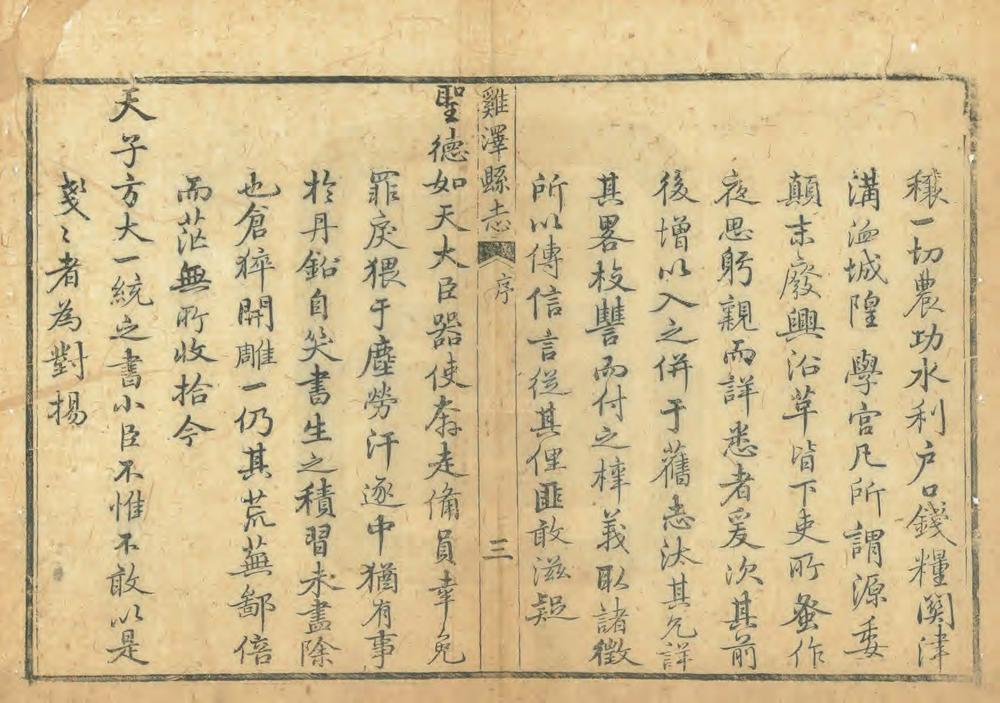 穰一切農功水利户口錢糧関津
溝洫城隍學官凡所謂源委
顛末廢興沿草皆下吏所蚤作
夜思躬親而詳悉者爰次其前
後增以入之併于舊志汰其冗詳
其畧校讐而付之梓義取諸徵
所以傳信言從其俚匪敢滋疑
雞澤縣志
序
三
聖德如天大臣器使奔走備員幸免
罪戾猥于塵勞汗逐中猶有事
於丹鉛自笑書生之積習未盡除
也倉猝開雕一仍其荒蕪鄙倍
而茫無所收拾今
天子方大一統之書小臣不惟不敢以是
戔〻者為對揚